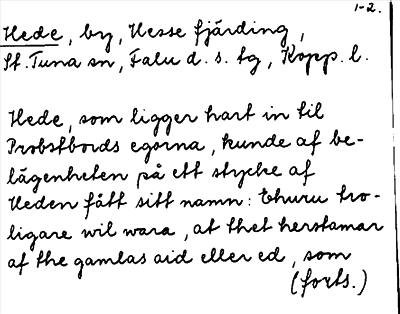 1-2.
Hede, by, Hesse fjärding,
St. Tuna sn, Falu d. s. tg, Kopp. l.
Hede, som ligger hart in til
Probstbords egorna, kunde af be-
lägenheten på ett stycke af
Heden fått sitt namn: Ehuru tro-
ligare wil wara, at thet herstamar
af the gamlas aid eller ed, som
(forts.)